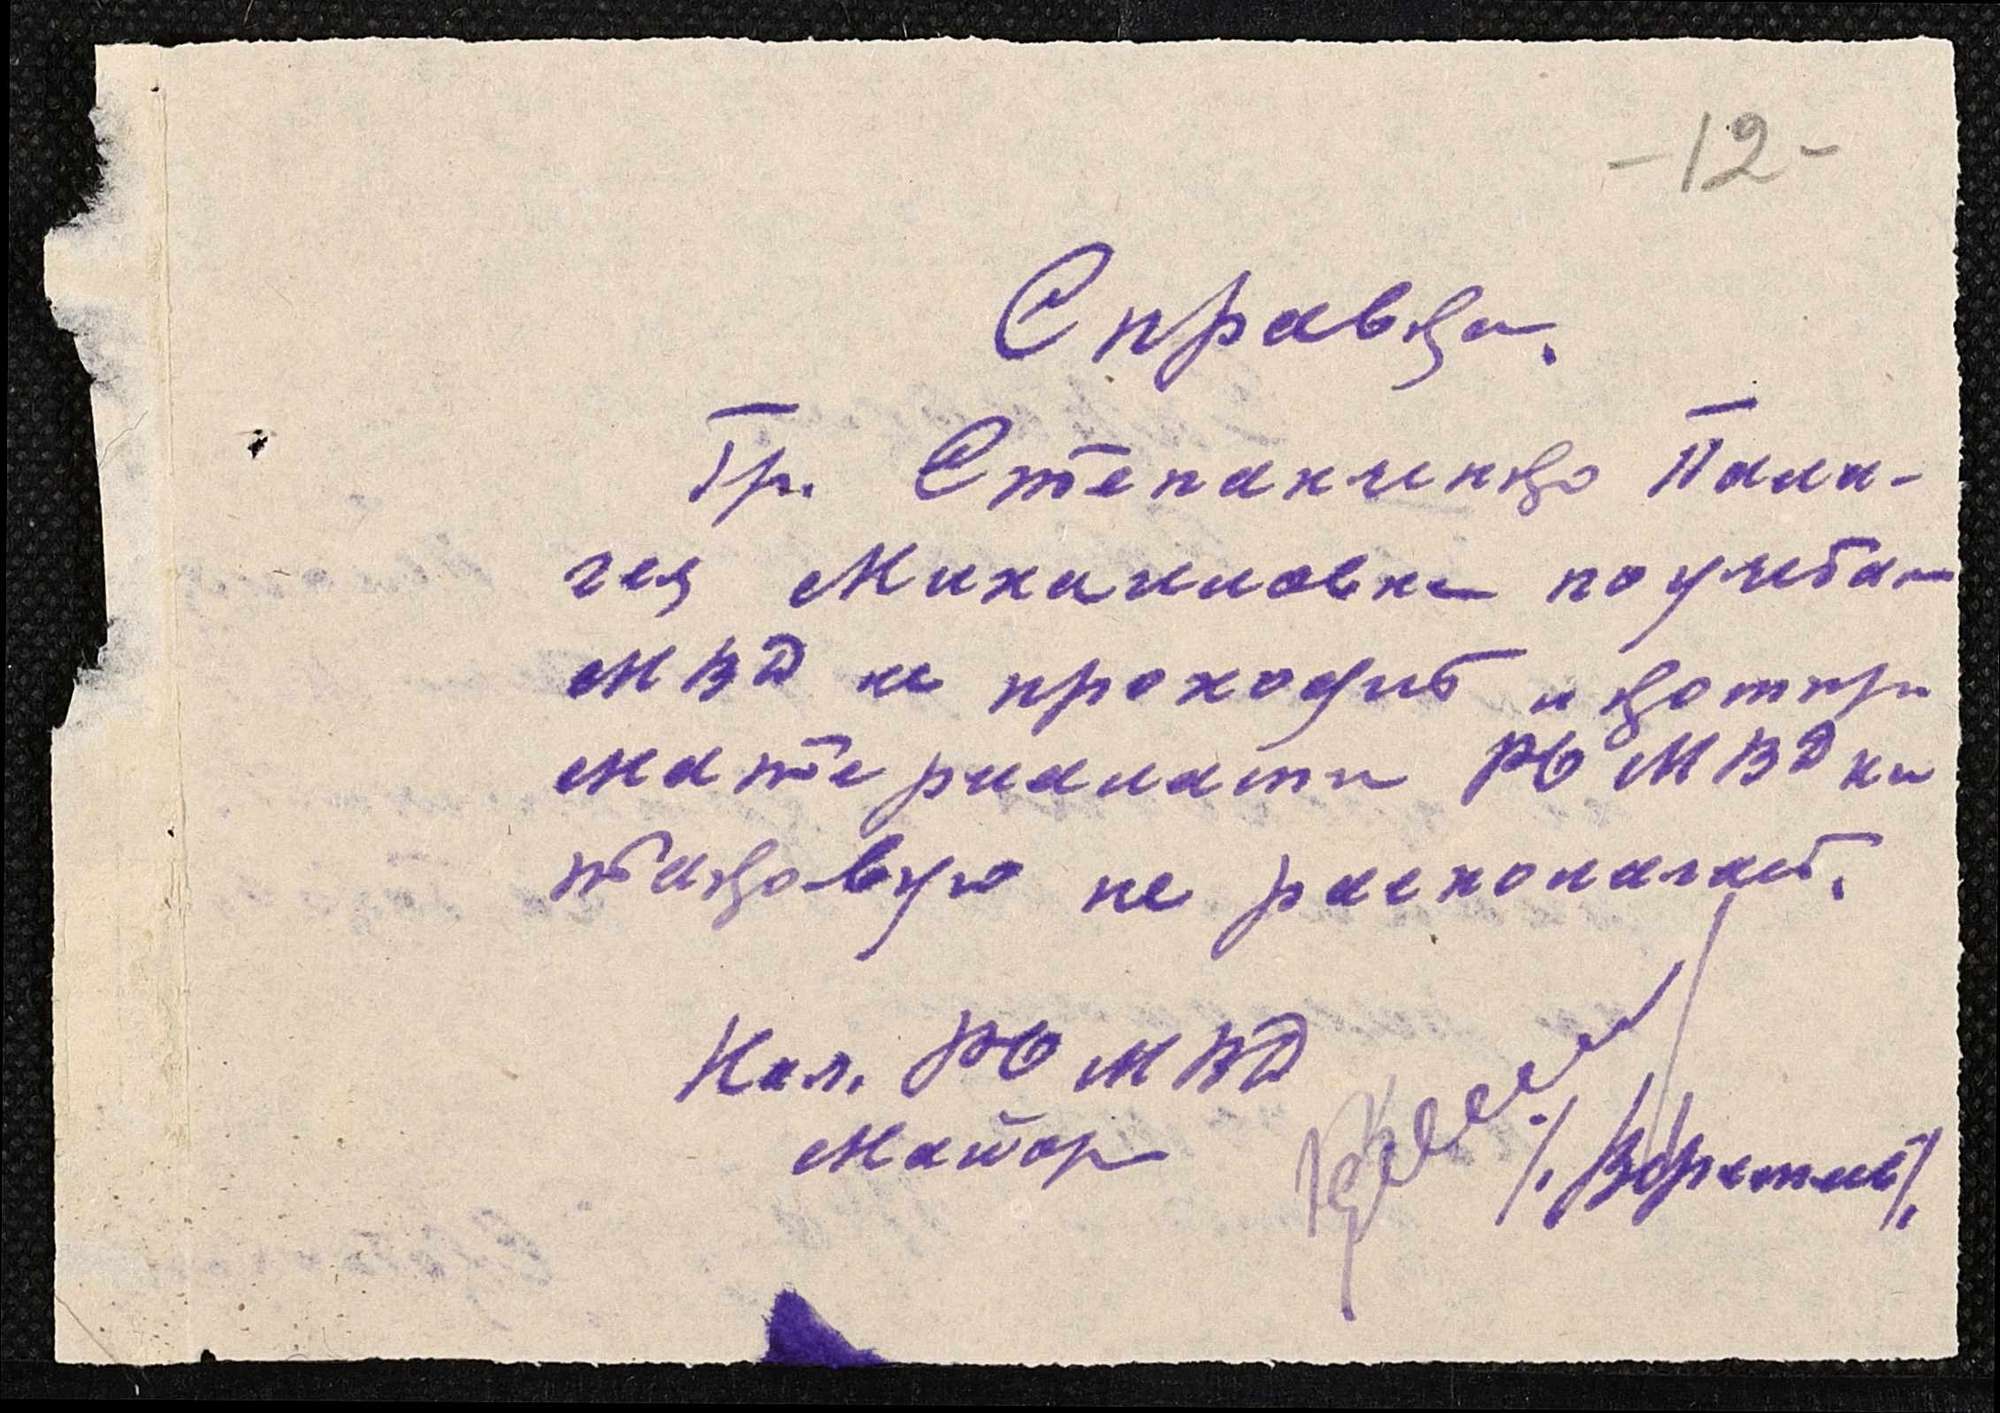 -12-
Справка.
Гр. Степанченко Пала-
гея Михайловна по учетам
МВД не проходит и компр
материалами РО МВД на
таковую не располагает.
Нач. РО МВД
Майор